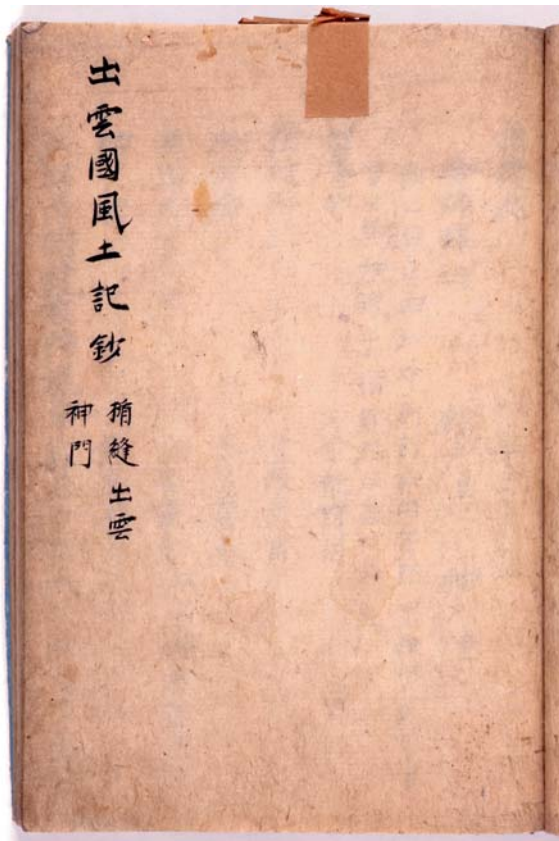 出雲國風土記鈔
楯縫出雲
神門